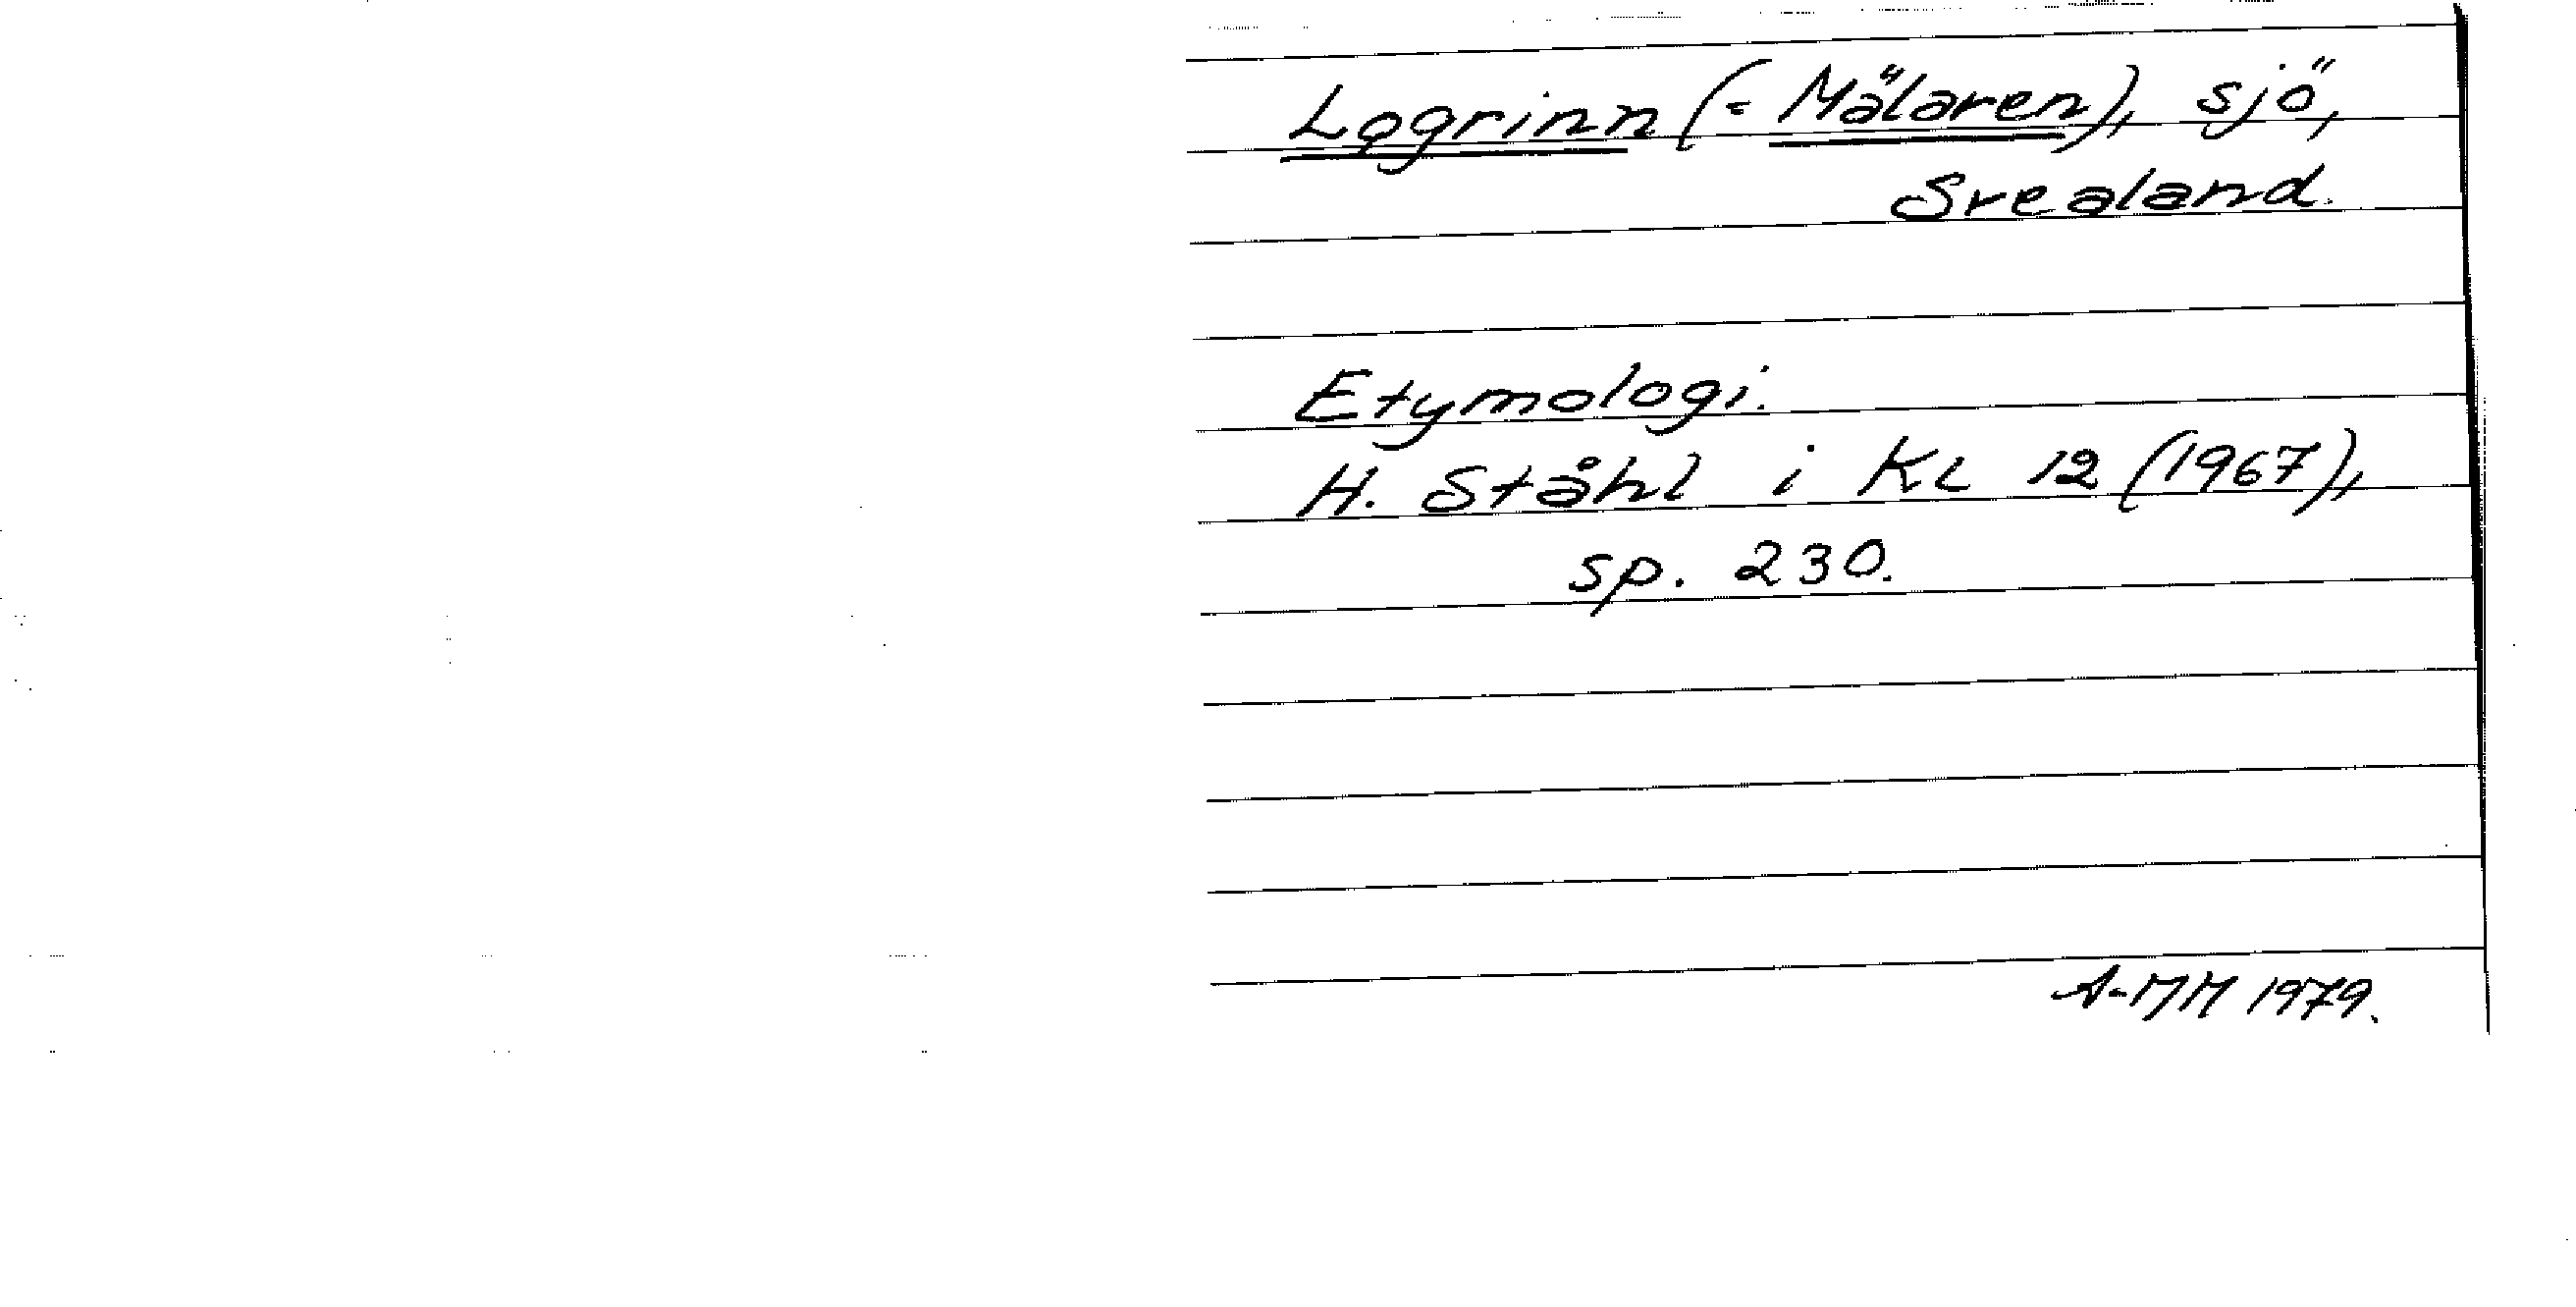 Lǫgrinn (= Mälaren), sjö,
Svealand.
Etymologi.
H. Ståhl i KL 12 (1967),
sp. 230.
A-MM 1979.